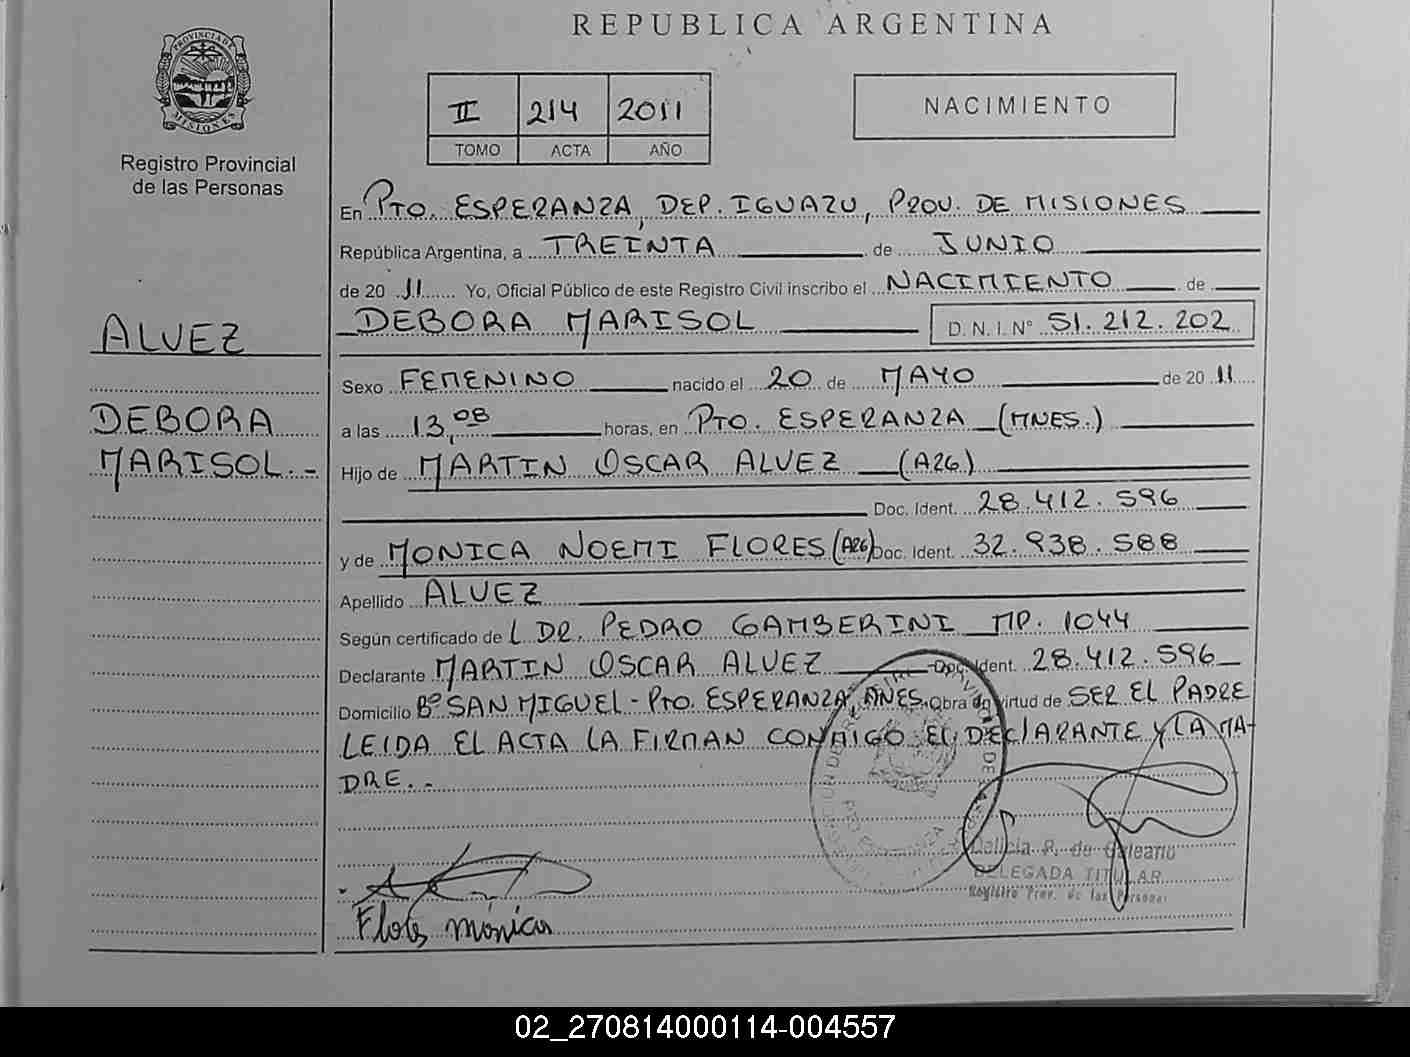 REPUBLICA ARGENTINA
PROVINCIA DE
MISIONES
Registro Provincial
de las Personas
II 214 2011
TOMO ACTA AÑO
NACIMIENTO
ALVEZ
DEBORA
MARISOL.-
En PTO. ESPERANZA, DEP. IGUAZU, PROV. DE MISIONES
República Argentina, a TREINTA de JUNIO
de 20 11 Yo, Oficial Público de este Registro Civil inscribo el NACIMIENTO de
DEBORA MARISOL D. N. I. N° 51.212.202
Sexo FEMENINO nacido el 20 de MAYO de 20 11
a las 13,08 horas, en PTO. ESPERANZA (MNES.)
Hijo de MARTIN OSCAR ALVEZ (A26)
Doc. Ident. 28.412.596
y de MONICA NOEMI FLORES (A26) Doc. Ident. 32.938.588
Apellido ALVEZ
Según certificado de L DR. PEDRO GAMBERINI MP. 1044
Declarante MARTIN OSCAR ALVEZ Doc. Ident. 28.412.596
Domicilio B° SAN MIGUEL - PTO. ESPERANZA, MNES. Obra en virtud de SER EL PADRE
LEIDA EL ACTA LA FIRMAN CONMIGO EL DECLARANTE Y LA MA-
DRE.-
R. de Galeano
DELEGADA TITULAR
Registro Prov. de las Personas
Flores mónica
02_270814000114-004557